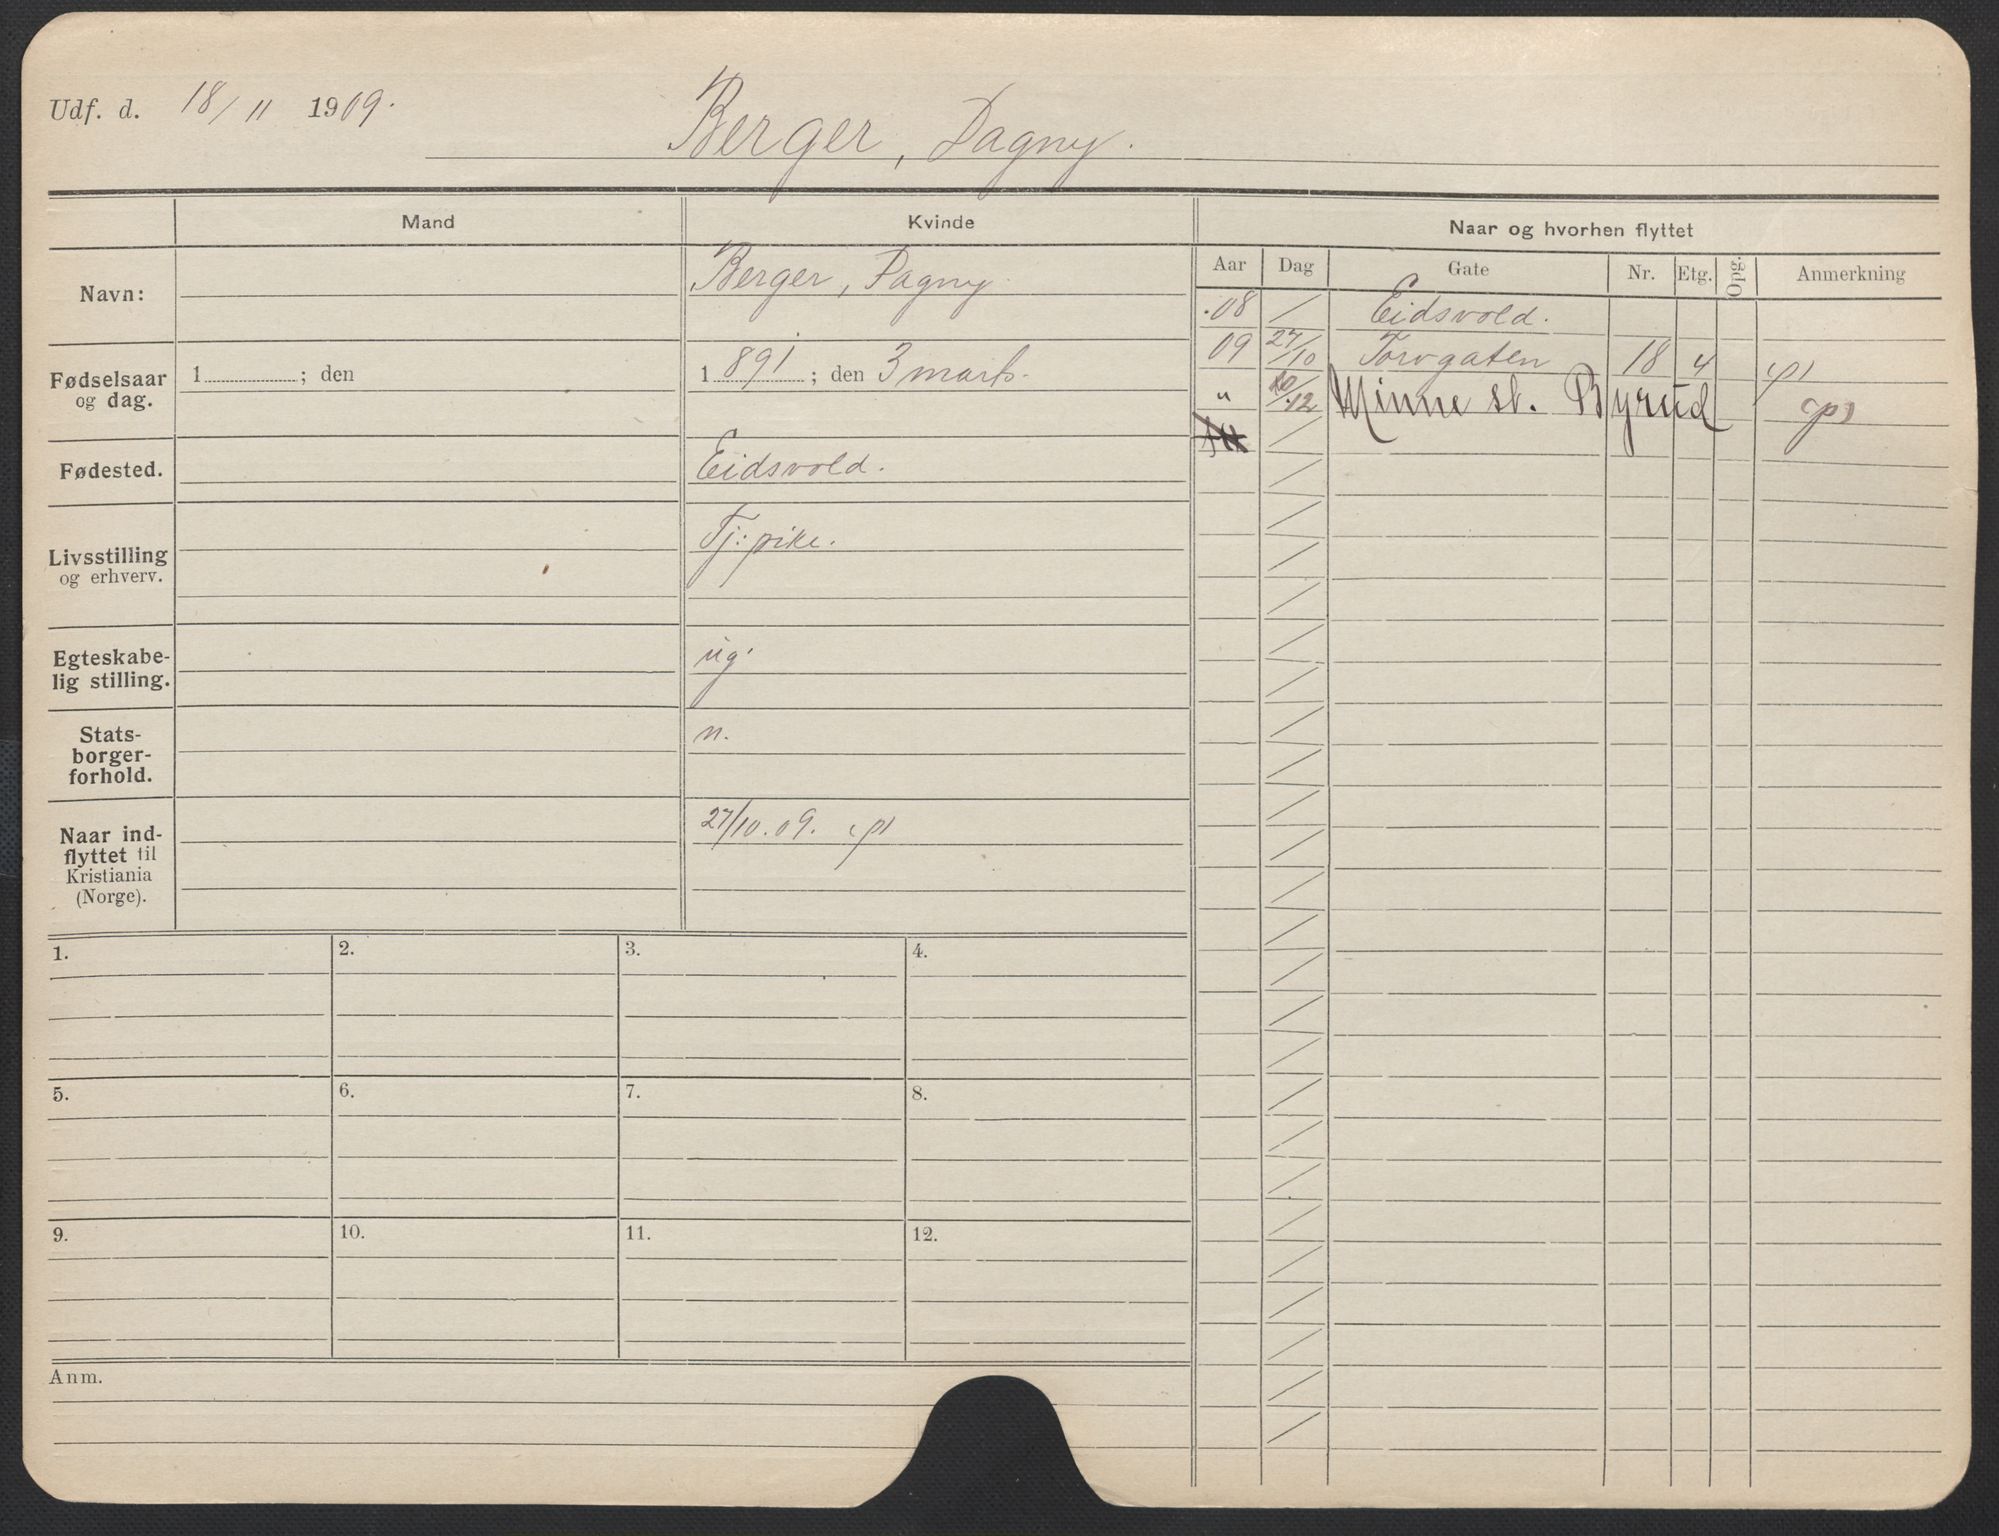 Udf. d. 18/11 1909.
Berger, Dagny.
Mand
Kvinde
Naar og hvorhen flyttet
Aar Dag Gate Nr. Etg. Opg. Anmerkning
Navn:
Berger, Dagny.
08 / Eidsvold.
09 27/10 Torvgaten 18 4
" 10/12 Minne st. Byrud
Fødselsaar
og dag.
1 ; den
1 891 ; den 3 marts.
Fødested.
Eidsvold.
Livsstilling
og erhverv.
Tj: pike.
Egteskabe-
lig stilling.
ug.
Stats-
borger-
forhold.
n.
Naar ind-
flyttet til
Kristiania
(Norge).
27/10.09.
1. 2. 3. 4.
5. 6. 7. 8.
9. 10. 11. 12.
Anm.